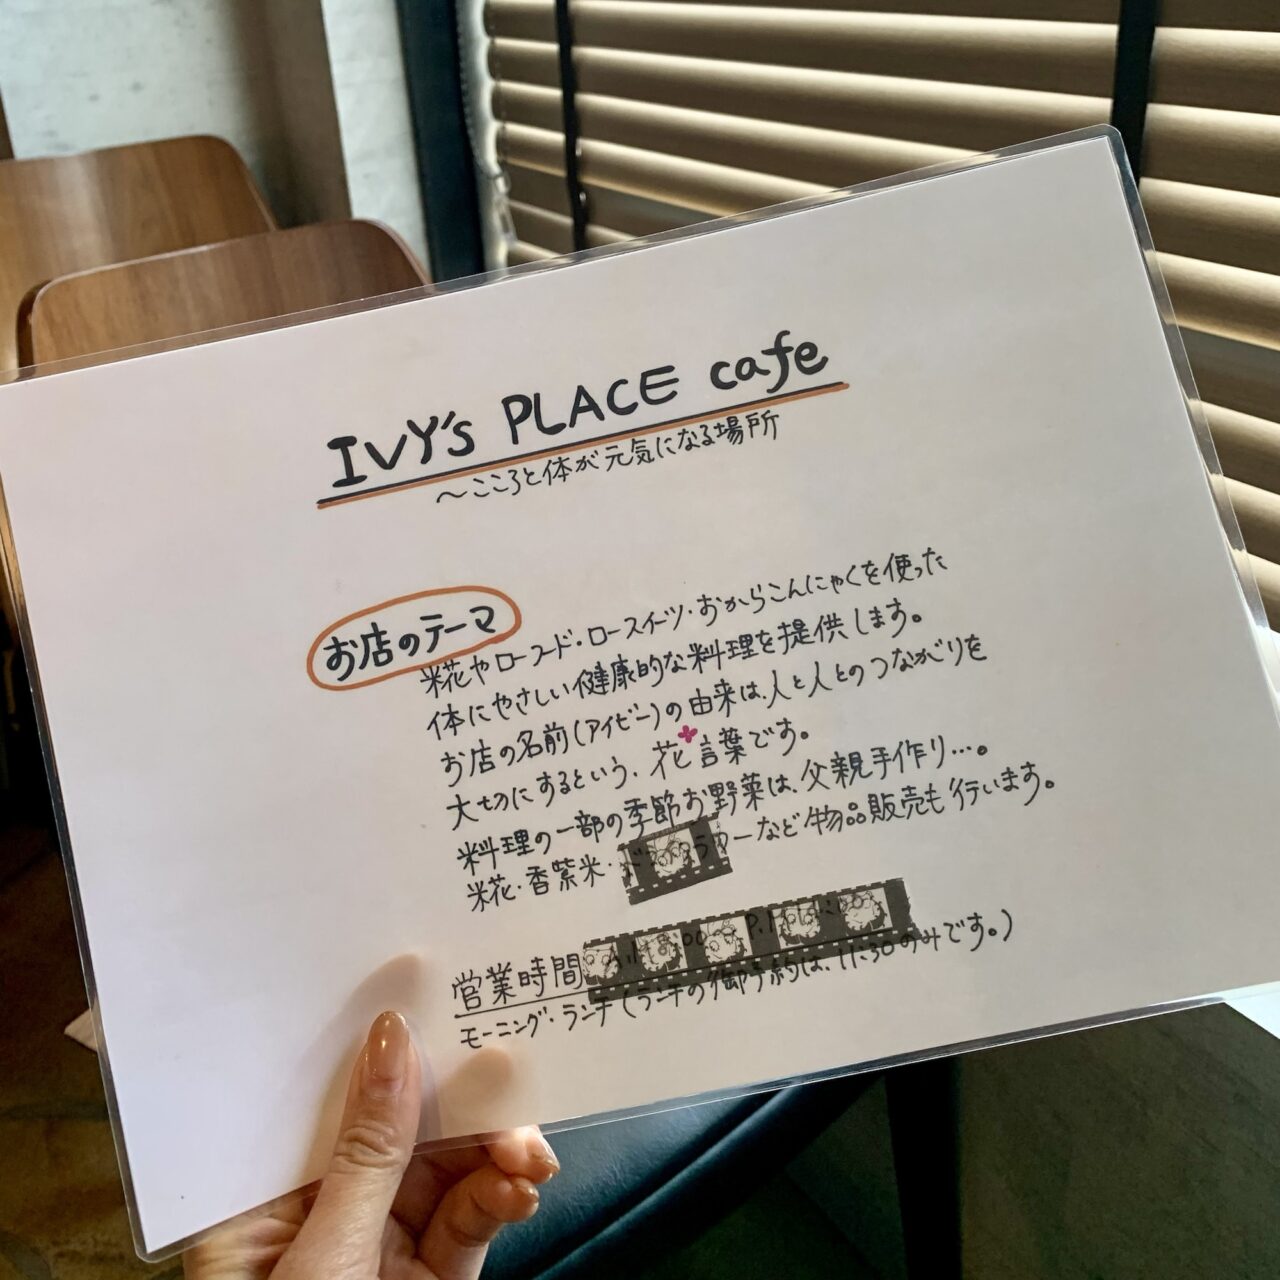 IVY's PLACE cafe
〜こころと体が元気になる場所
お店のテーマ
糀やローフード・ロースイーツ・おからこんにゃくを使った
体にやさしい健康的な料理を提供します。
お店の名前(アイビー)の由来は、人と人とのつながりを
大切にするという、花言葉です。
料理の一部の季節お野菜は、父親手作り…。
糀花・香紫米・など物品販売も行います。
営業時間
モーニング・ランチ(ランチの御予約は、11:30のみです。)